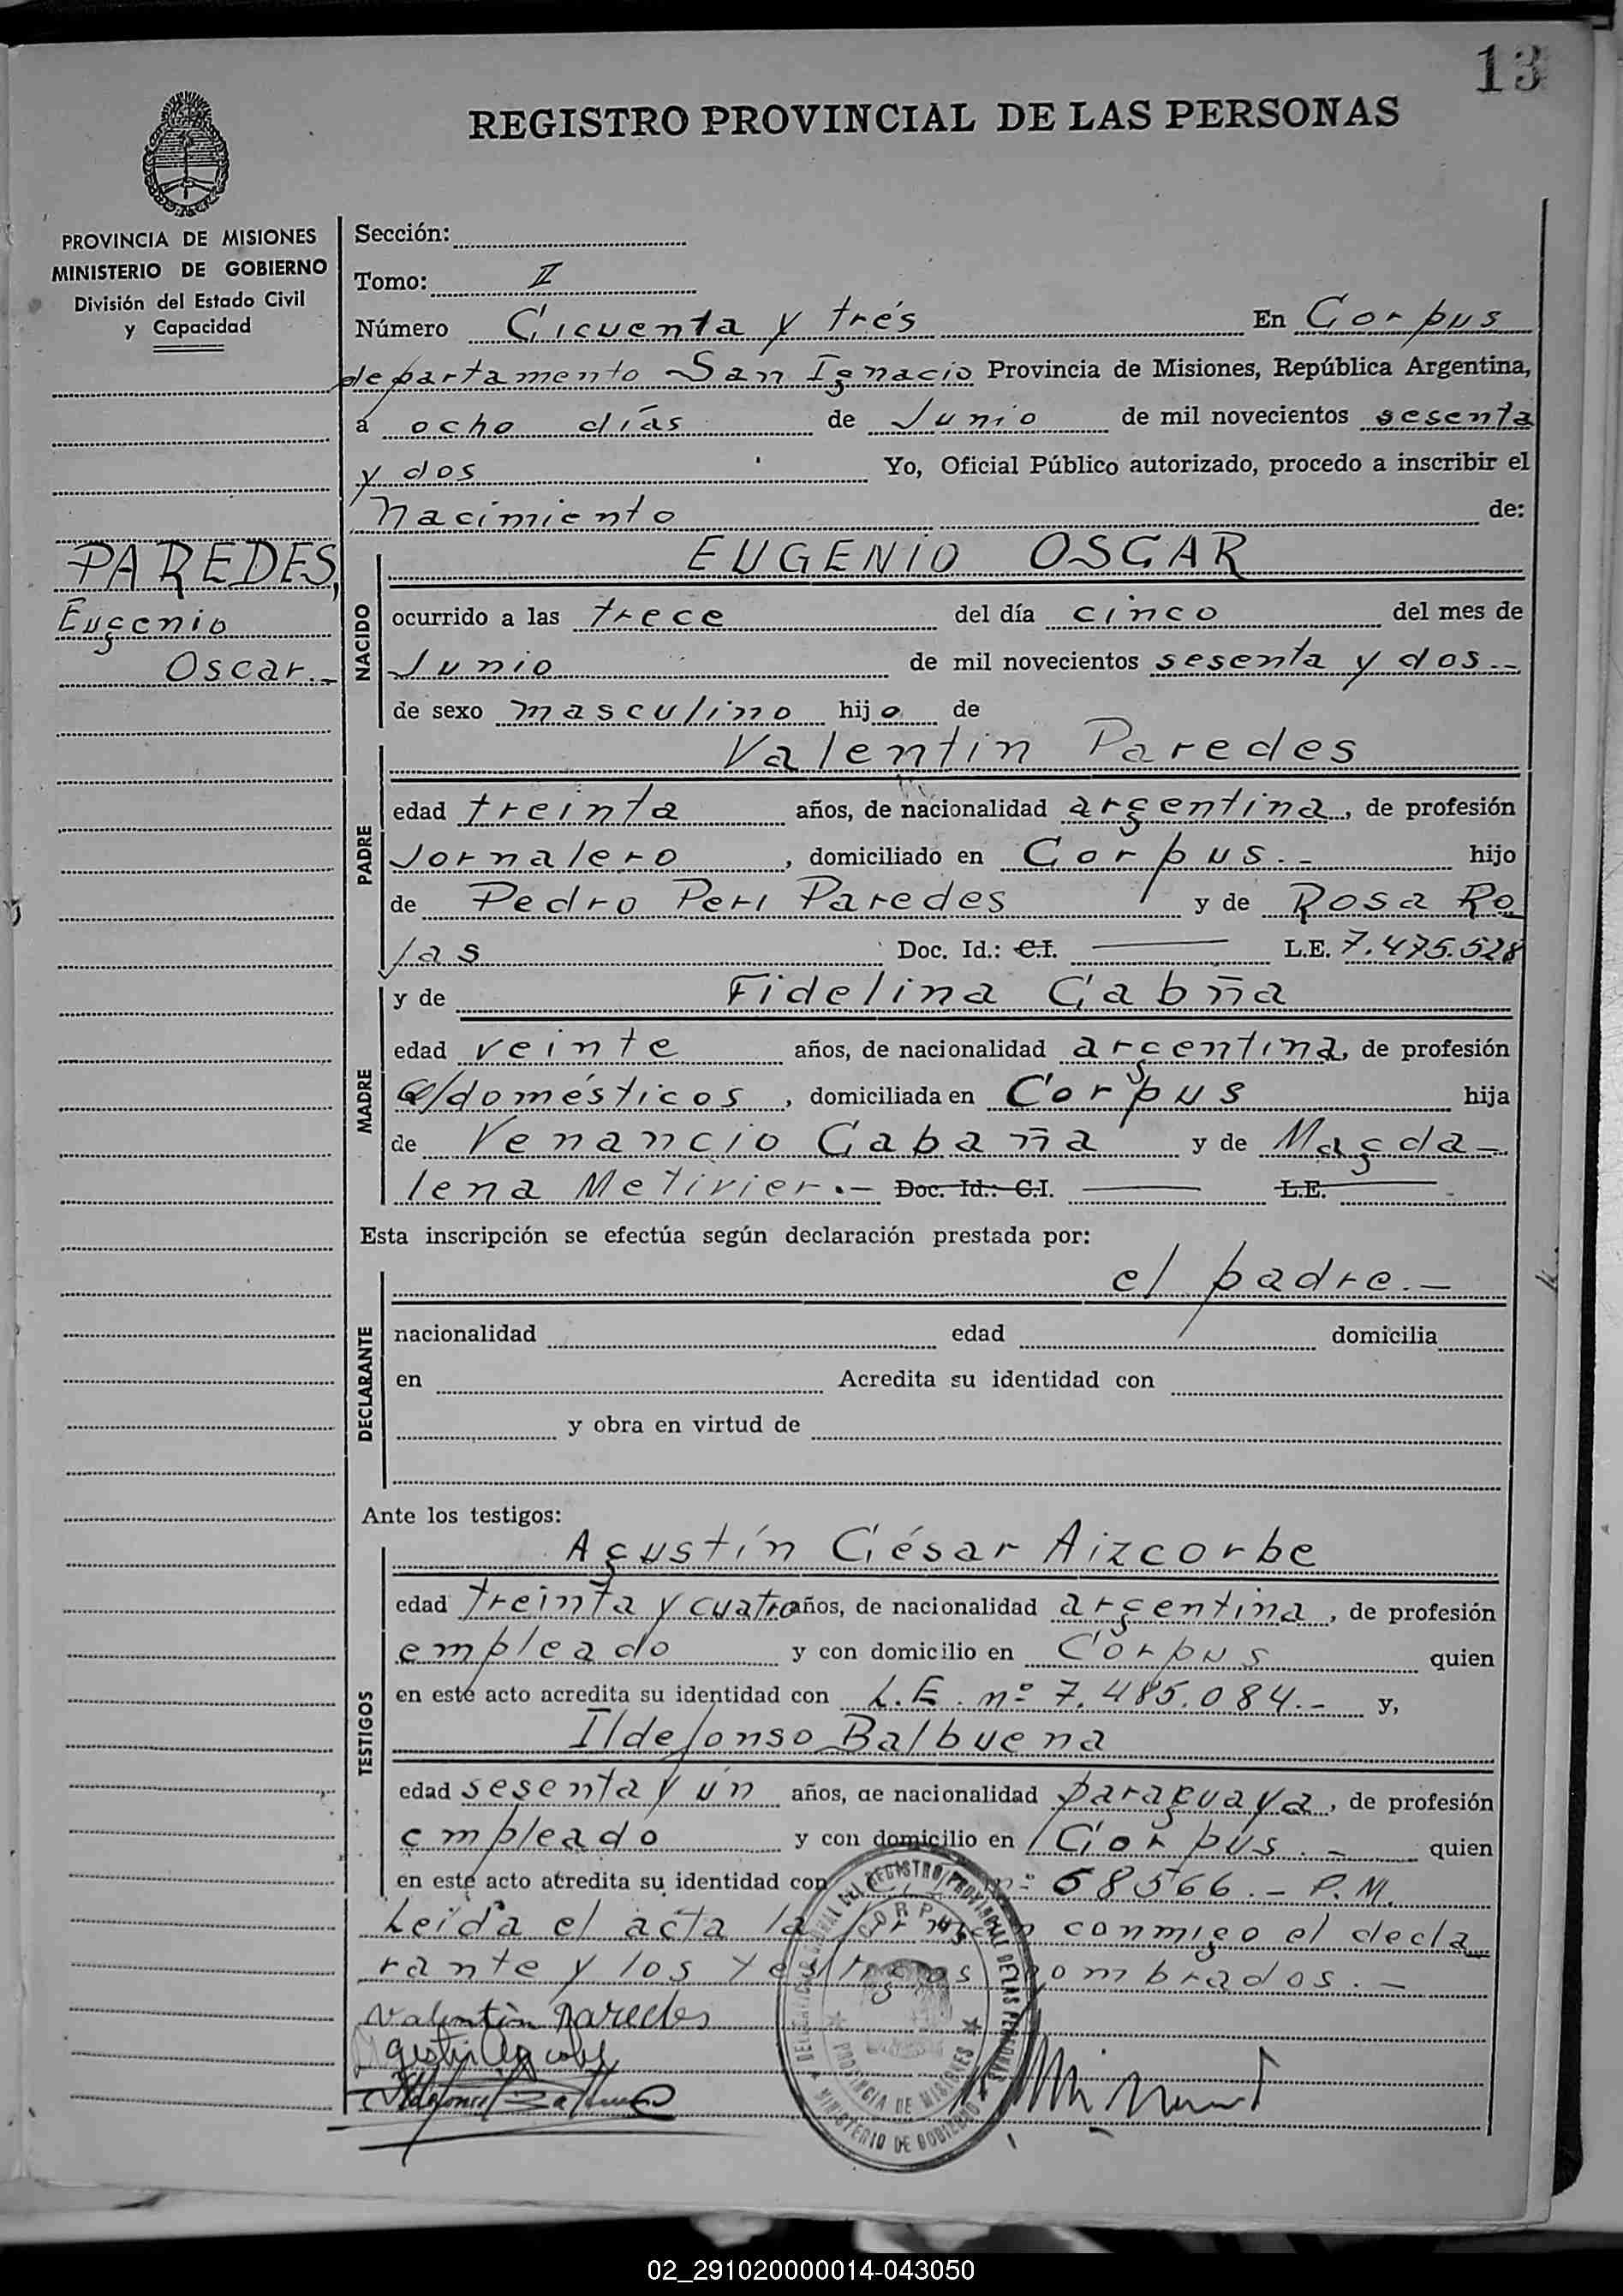 13
REGISTRO PROVINCIAL DE LAS PERSONAS
PROVINCIA DE MISIONES
MINISTERIO DE GOBIERNO
División del Estado Civil
y Capacidad
PAREDES,
Eugenio
Oscar.-
Sección:
Tomo: II
Número Cicuenta y trés En Corpus
departamento San Ignacio Provincia de Misiones, República Argentina,
a ocho días de Junio de mil novecientos sesenta
y dos Yo, Oficial Público autorizado, procedo a inscribir el
Nacimiento de:
NACIDO
EUGENIO OSCAR
ocurrido a las trece del día cinco del mes de
Junio de mil novecientos sesenta y dos.-
de sexo masculino hijo de
PADRE
Valentín Paredes
edad treinta años, de nacionalidad argentina, de profesión
Jornalero, domiciliado en Corpus.- hijo
de Pedro Peri Paredes y de Rosa Ro
jas Doc. Id.: C.I. L.E. 7.475.528
MADRE
y de Fidelina Cabña
edad veinte años, de nacionalidad argentina, de profesión
Q/domésticos, domiciliada en Corpus hija
de Venancio Cabaña y de Magda-
lena Metivier.- Doc. Id.: C.I. L.E.
Esta inscripción se efectúa según declaración prestada por:
DECLARANTE
el padre.-
nacionalidad edad domicilia
en Acredita su identidad con
y obra en virtud de
Ante los testigos:
TESTIGOS
Agustín César Aizcorbe
edad treinta y cuatro años, de nacionalidad argentina, de profesión
empleado y con domicilio en Corpus quien
en este acto acredita su identidad con L.E. nº 7.485.084.- y,
Ildefonso Balbuena
edad sesenta y un años, de nacionalidad paraguaya, de profesión
empleado y con domicilio en Corpus.- quien
en este acto acredita su identidad con nº 68566.- P.M.
Leída el acta la firman conmigo el decla
rante y los testigos nombrados.-
Valentín Paredes
Ildefonso Balbuena
DEL REGISTRO PROVINCIAL DE LAS PERSONAS
CORPUS
PROVINCIA DE MISIONES
MINISTERIO DE GOBIERNO
02_291020000014-043050